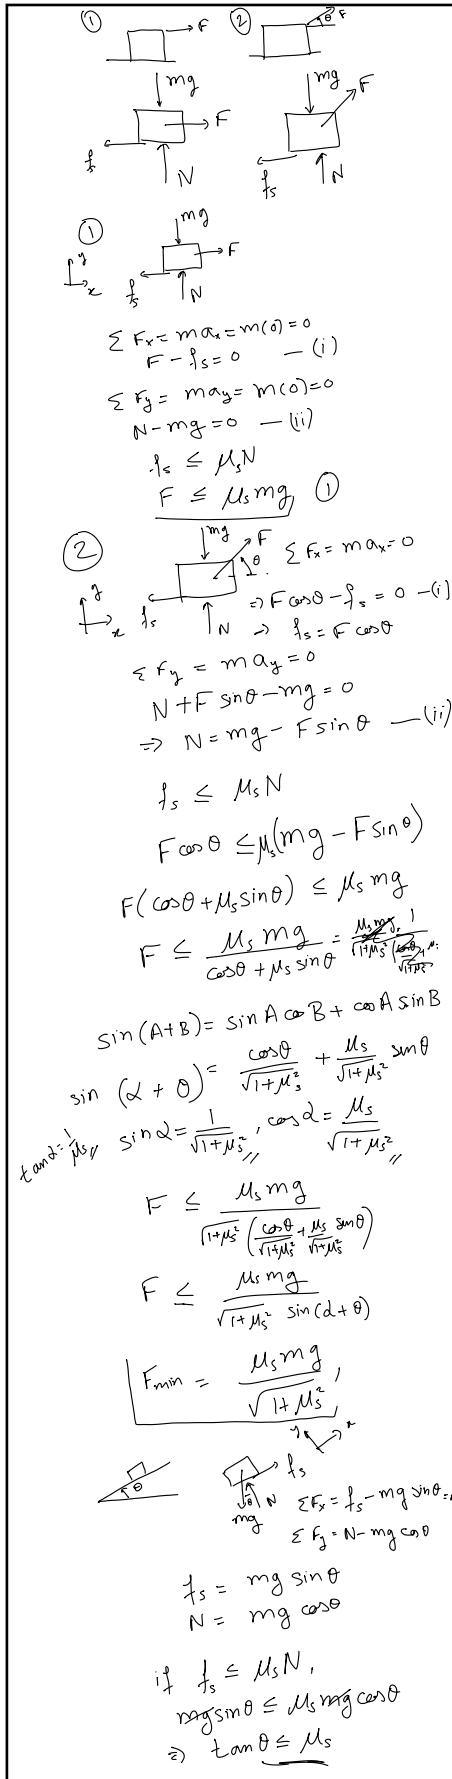 ① F ② θ F
mg mg F
F
fs N fs N
① mg
y F
x fs N
Σ Fx = max = m(0) = 0
F - fs = 0 — (i)
Σ Fy = may = m(0) = 0
N - mg = 0 — (ii)
fs ≤ μsN
F ≤ μsmg, ①
② mg F θ Σ Fx = max = 0
y ⇒ F cosθ - fs = 0 — (i)
x fs N ⇒ fs = F cosθ
Σ Fy = may = 0
N + F sinθ - mg = 0
⇒ N = mg - F sinθ — (ii)
fs ≤ μs N
F cosθ ≤ μs(mg - F sinθ)
F(cosθ + μs sinθ) ≤ μs mg
F ≤ μs mg / (cosθ + μs sinθ) =
sin(A+B) = sin A cos B + cos A sin B
sin (α + θ) = cosθ/√(1+μs²) + μs/√(1+μs²) sinθ
tanα = 1/μs sinα = 1/√(1+μs²), cosα = μs/√(1+μs²)
F ≤ μs mg / (√(1+μs²) (cosθ/√(1+μs²) + μs/√(1+μs²) sinθ))
F ≤ μs mg / (√(1+μs²) sin(α + θ))
Fmin = μs mg / √(1+μs²),
y x
θ θ N fs ΣFx = fs - mg sinθ =
mg ΣFy = N - mg cosθ
fs = mg sinθ
N = mg cosθ
if fs ≤ μs N,
mg sinθ ≤ μs mg cosθ
⇒ tanθ ≤ μs